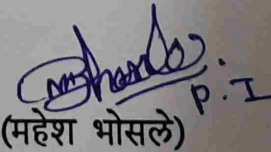 P. I
(महेश भोसले)